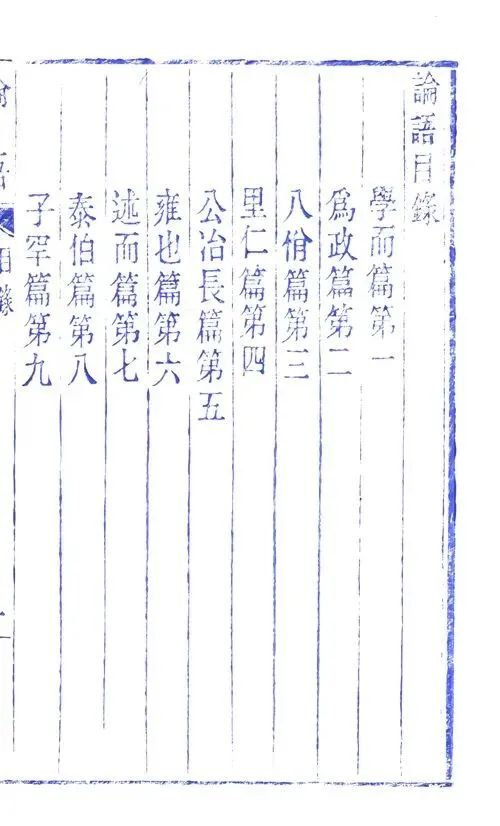 論語目錄
學而篇第一
爲政篇第二
八佾篇第三
里仁篇第四
公冶長篇第五
雍也篇第六
述而篇第七
泰伯篇第八
子罕篇第九
論語
目錄
一